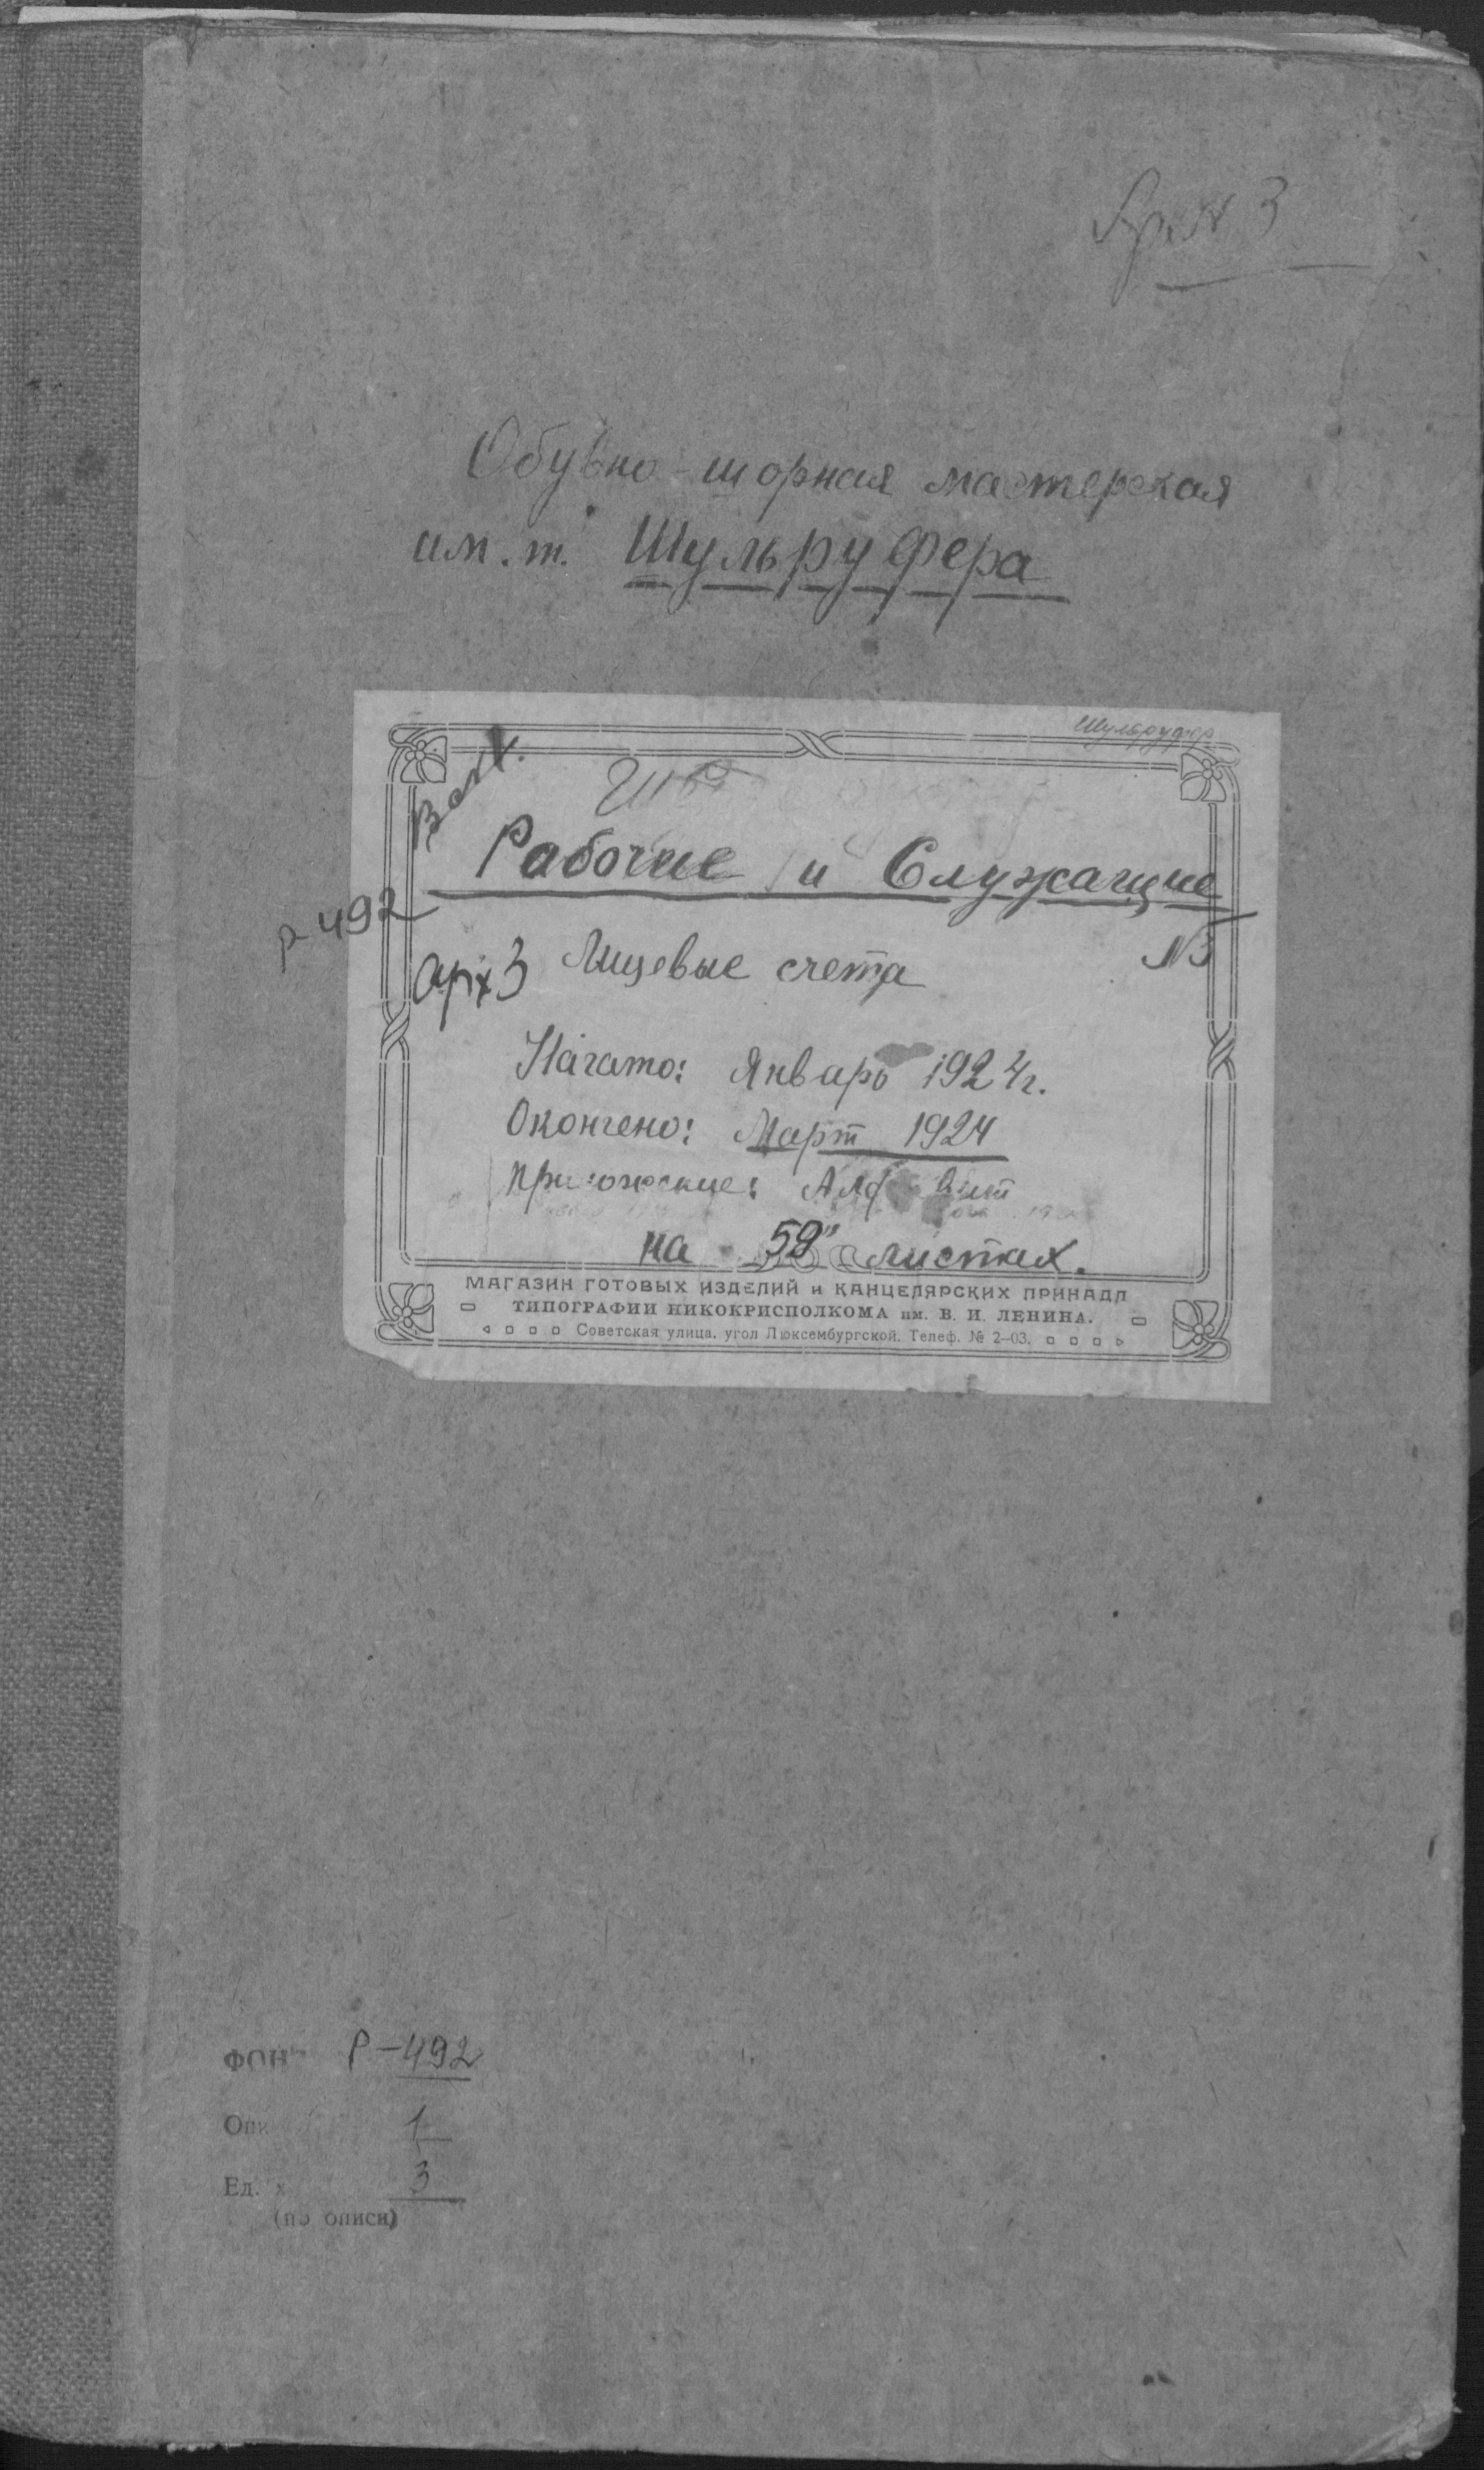 Арх 3
Обувно-шорная мастерская
им. т. Шульруфера
Шульруфер
Рабочие и Служащие
Р 492
№3
арх 3 Лицевые счета
Начато: Январь 1924 г.
Окончено: Март 1924
приложение: Алфавит
на 59 листах.
МАГАЗИН ГОТОВЫХ ИЗДЕЛИЙ и КАНЦЕЛЯРСКИХ ПРИНАДЛ
ТИПОГРАФИИ НИКОКРИСПОЛКОМА им. В. И. ЛЕНИНА.
Советская улица, угол Люксембургской. Телеф. № 2-03.
ФОН Р-492
Опи 1
Ед. х 3
(по описи)